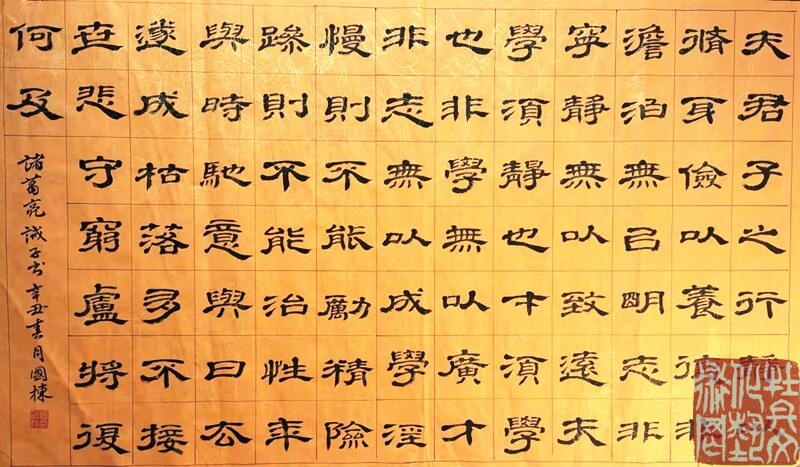 夫君子之行靜
脩身儉以養德非
澹泊無以明志非
寧靜無以致遠夫
學須靜也才須學
也非學無以廣才
非志無以成學淫
慢則不能勵精險
躁則不能治性年
與時馳意與日去
遂成枯落多不接
世悲守窮廬將復
何及
諸葛亮誡子書辛丑春月國棟